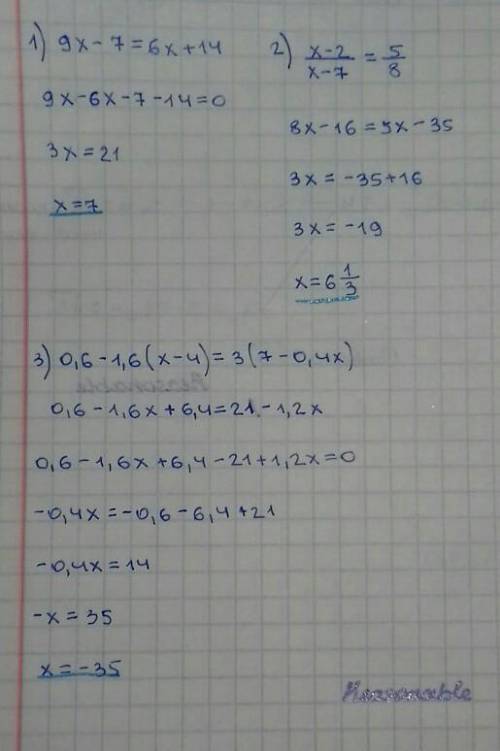 1) 9x-7=6x+14
9x-6x-7-14=0
3x=21
x=7
2) \frac{x-2}{x-7} = \frac{5}{8}
8x-16=5x-35
3x=-35+16
3x=-19
x=6\frac{1}{3}
3) 0,6-1,6(x-4)=3(7-0,4x)
0,6-1,6x+6,4=21-1,2x
0,6-1,6x+6,4-21+1,2x=0
-0,4x=-0,6-6,4+21
-0,4x=14
-x=35
x=-35
Reasonable